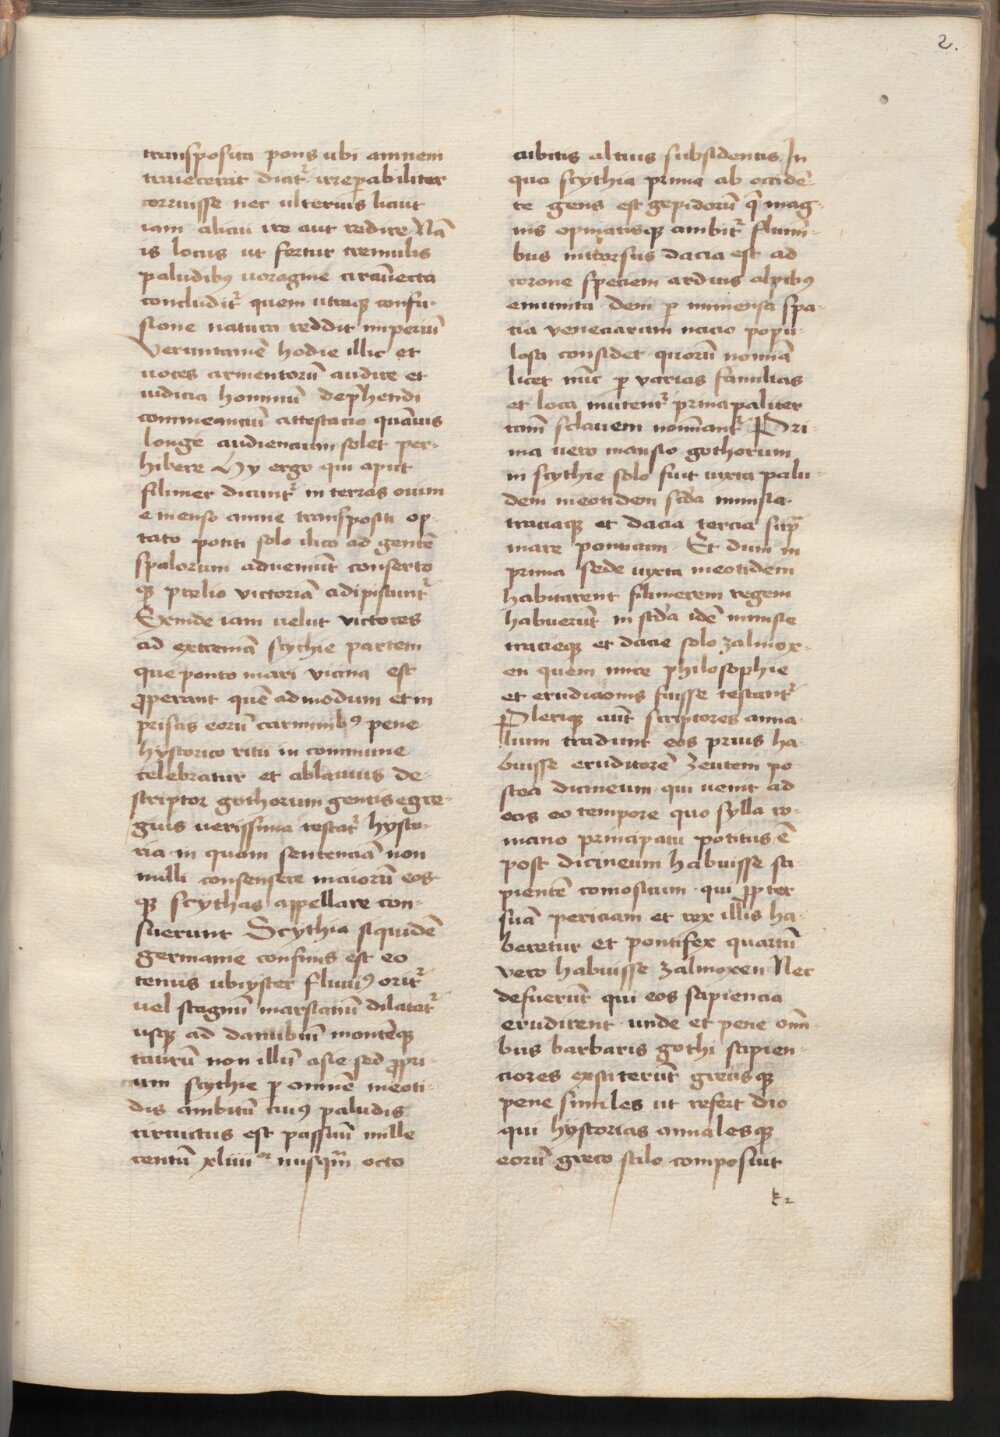 2.
transposita pons ubi amnem
traiecerat dicit᷑ irrep̱abiliter
corruisse nec ulterius licuit
iam alicui ire aut redire Nā
is locus ut fertur tremulis
paludibꝰ uoragine circūiecta
concludit᷑ quem utraqꝫ confu-
sione natura reddit imperuiū
Veruntamē hodie illic et
uoces armentorū audire et
iudicia hominū dep̄hendi
commeantiū attestatio quāuis
longe audiencium solet per-
hibere Hy ergo qui aput
filimer dicunt᷑ in terras ouim
emenso amne transpositi op-
tato potiti solo ilico ad gentē
spalorum adueniūt conserto
qꝫ p̄relio victoriā adipiscunt᷑
Exinde iam uelut victores
ad extremā scythie partem
que ponto mari vicina est
ꝓperant quē admodum et in
priscis eorū carminibꝰ pene
hystorico ritu in commune
celebratur et ablauius de-
scriptor gothorum gentis egre-
gius uerissima testat᷑ hysto-
ria in quam sentenciā non
nulli consensere maiorū eos-
qꝫ scythas appellare con-
sueuerunt Scythia siquidē
germanie confinis est eo
tenus ubi yster fluuiꝰ orit᷑
uel stagnū marsianū dilatat᷑
usqꝫ ad danubiū montēqꝫ
taurū non illū asie sed ꝓpri-
um scythie p̱ omnē meoti-
dis ambitū cuiꝰ paludis
circuitus est passuū mille
centū xliiii or nusqm̄ octo
cubitis altius subsidentis In
qua scythia prima ab occidē-
te gens est gepidorū q̄ mag-
nis opinatisqꝫ ambit᷑ flumi-
bus introrsus dacia est ad
corone speciem arduis alpibꝰ
emunita dein p̱ inmensa spa-
cia veneciarum nacio popu-
losa considet quorū nomīa
licet nūc p̱ varias familias
et loca mutent᷑ principaliter
tamē sclauem nominant᷑ Pri-
ma uero mansio gothorum
in scythie solo fuit iuxta palu-
dem meotidem scd̄a minsia
traciaqꝫ et dacia tercia sup̄
mare ponticum Et dum in
prima sede iuxta meotidem
habitarent filimerem regem
habuerūt in scd̄a idē minsie
tracieqꝫ et dacie solo zalmox-
en quem mire philosophie
et erudicionis fuisse testant᷑
Plerique aūt scriptores anna-
lium tradunt eos prius ha-
buisse eruditorē zeutem po-
stea dicineum qui uenit ad
eos eo tempore quo sylla ro-
mano principatu potitus ē
post dicineum habuisse sa-
pientē comosicum qui ꝓpter
suā periciam et rex illis ha-
beretur et pontifex quartū
vero habuisse zalmoxen Nec
defuerūt qui eos sapiencia
erudirent unde et pene omni-
bus barbaris gothi sapien-
ciores exstiterūt grecisqꝫ
pene similes ut refert dio
qui hystorias annalesqꝫ
eorū greco stilo composuit
k2